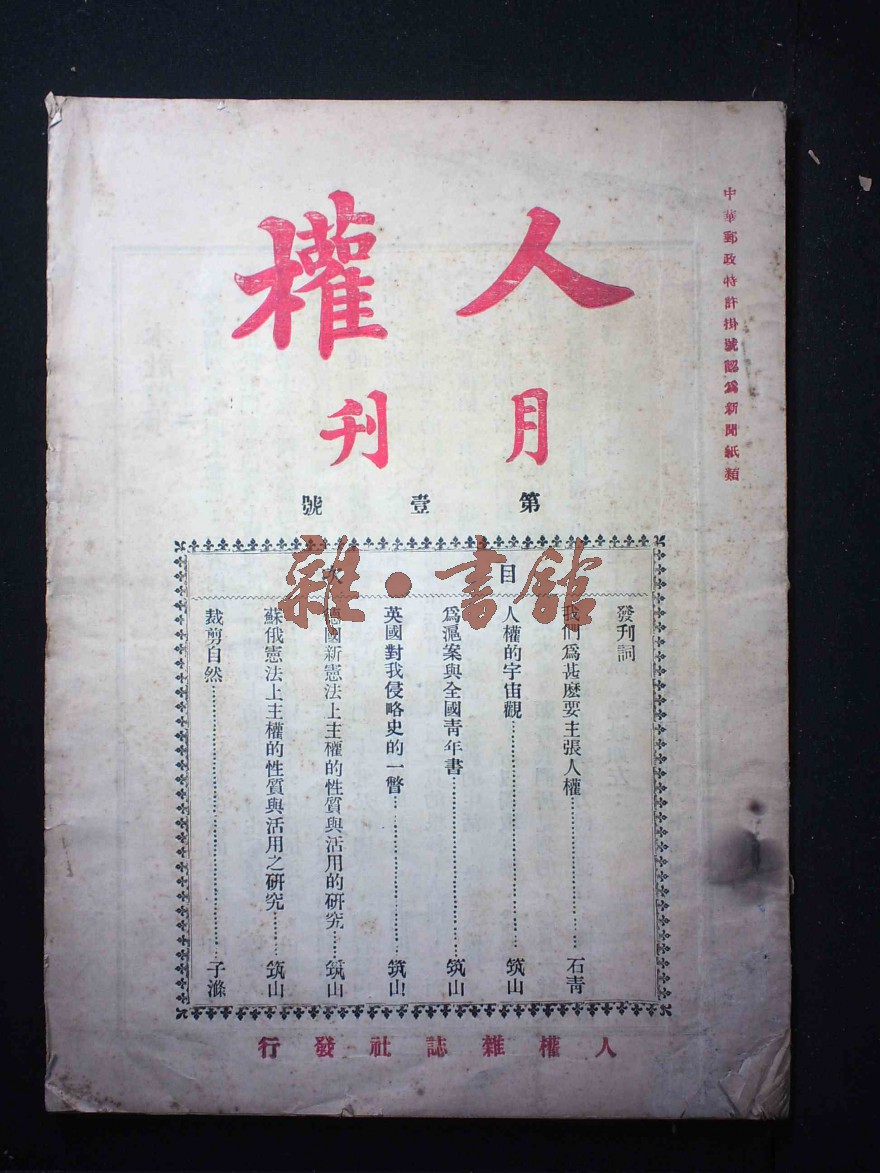 中華郵政特許掛號認爲新聞紙類
人權
月刊
第壹號
目次
發刊詞
我們爲甚麼要主張人權……石青
人權的宇宙觀……筑山
爲滬案與全國靑年書……筑山
英國對我侵略史的一瞥……筑山
德國新憲法上主權的性質與活用的硏究……筑山
蘇俄憲法上主權的性質與活用之硏究……筑山
裁剪自然……子滌
人權雜誌社發行
雜·書館